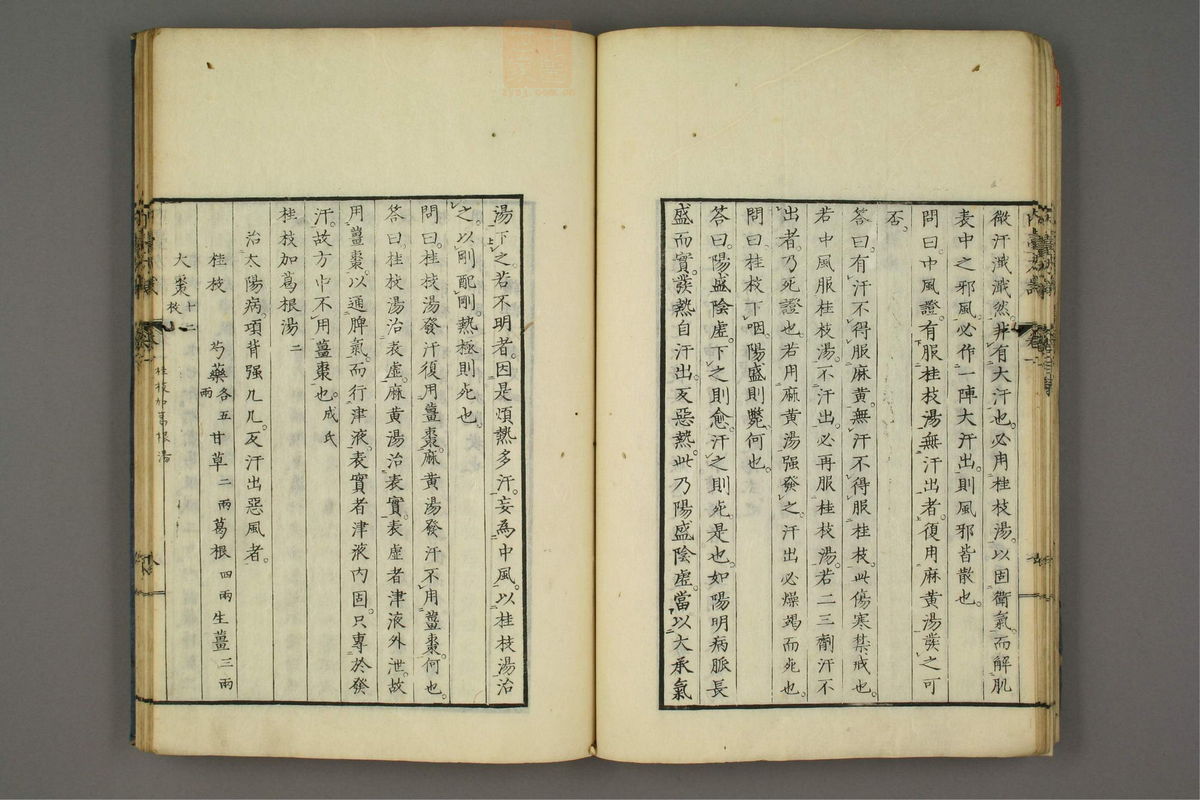 微汗濈濈然。非有大汗也。必用桂枝湯。以固衛氣。而解肌
表中之邪風。必作一陣大汗出。則風邪皆散也。
問曰。中風證。有服桂枝湯。無汗出者。復用麻黄湯。發之可
否。
答曰。有汗不得服麻黄。無汗不得服桂枝。此傷寒禁戒也。
若中風服桂枝湯。不汗出。必再服桂枝湯。若二三劑汗不
出者。乃死證也。若用麻黄湯强發之。汗出必燥竭而死也。
問曰。桂枝下咽。陽盛則斃。何也。
答曰。陽盛陰虛。下之則愈。汗之則死是也。如陽明病脈長
盛而實。發熱自汗出。反惡熱。此乃陽盛陰虛。當以大承氣
湯下之。若不明者。因是煩熱多汗。妄為中風。以桂枝湯治
之。以剛配剛。熱極則死也。
問曰。桂枝湯發汗。復用薑棗。麻黄湯發汗。不用薑棗。何也。
答曰。桂枝湯治表虛。麻黄湯治表實。表虛者津液外泄。故
用薑棗。以通脾氣。而行津液。表實者津液内固。只專於發
汗。故方中不用薑棗也。成氏
桂枝加葛根湯 二
治太陽病。項背强几几。反汗出惡風者。
桂枝 芍藥各五兩 甘草二兩 葛根四兩 生薑三兩
大棗十二枚
桂枝加葛根湯